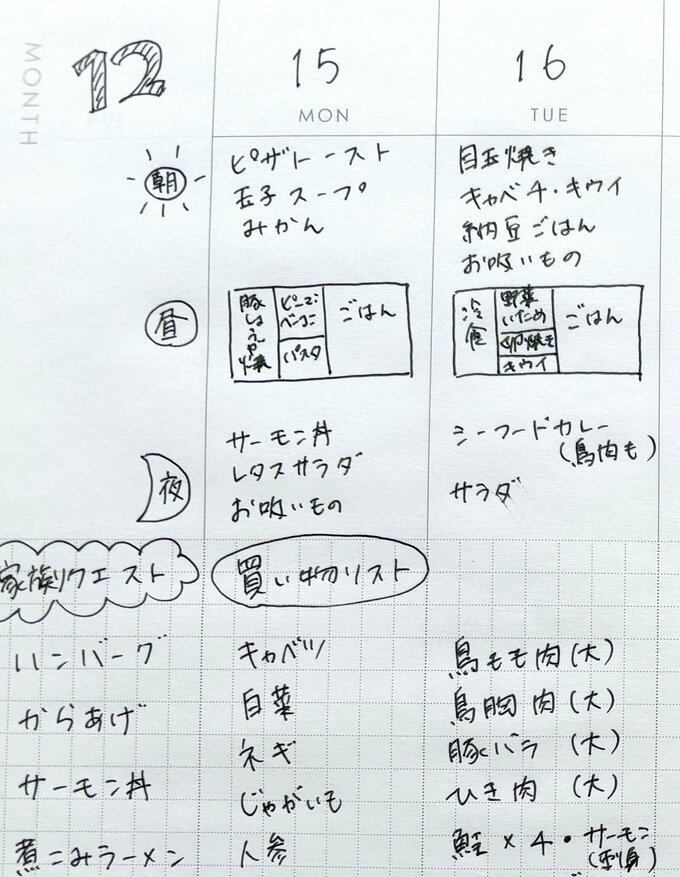 MONTH
12
15
MON
16
TUE
朝
ピザトースト
玉子スープ
みかん
目玉焼き
キャベチ・キウイ
納豆ごはん
お吸いもの
昼
豚しょうが焼
ピーマン
ベーコン
パスタ
ごはん
冷食
野菜
いため
卵焼き
キウイ
ごはん
夜
サーモン丼
レタスサラダ
お吸いもの
シーフードカレー
(鳥肉も)
サラダ
家族リクエスト
ハンバーグ
からあげ
サーモン丼
煮こみラーメン
買い物リスト
キャベツ
白菜
ネギ
じゃがいも
人参
鳥もも肉(大)
鳥胸肉(大)
豚バラ(大)
ひき肉(大)
鮭×4・サーモン
(刺身)